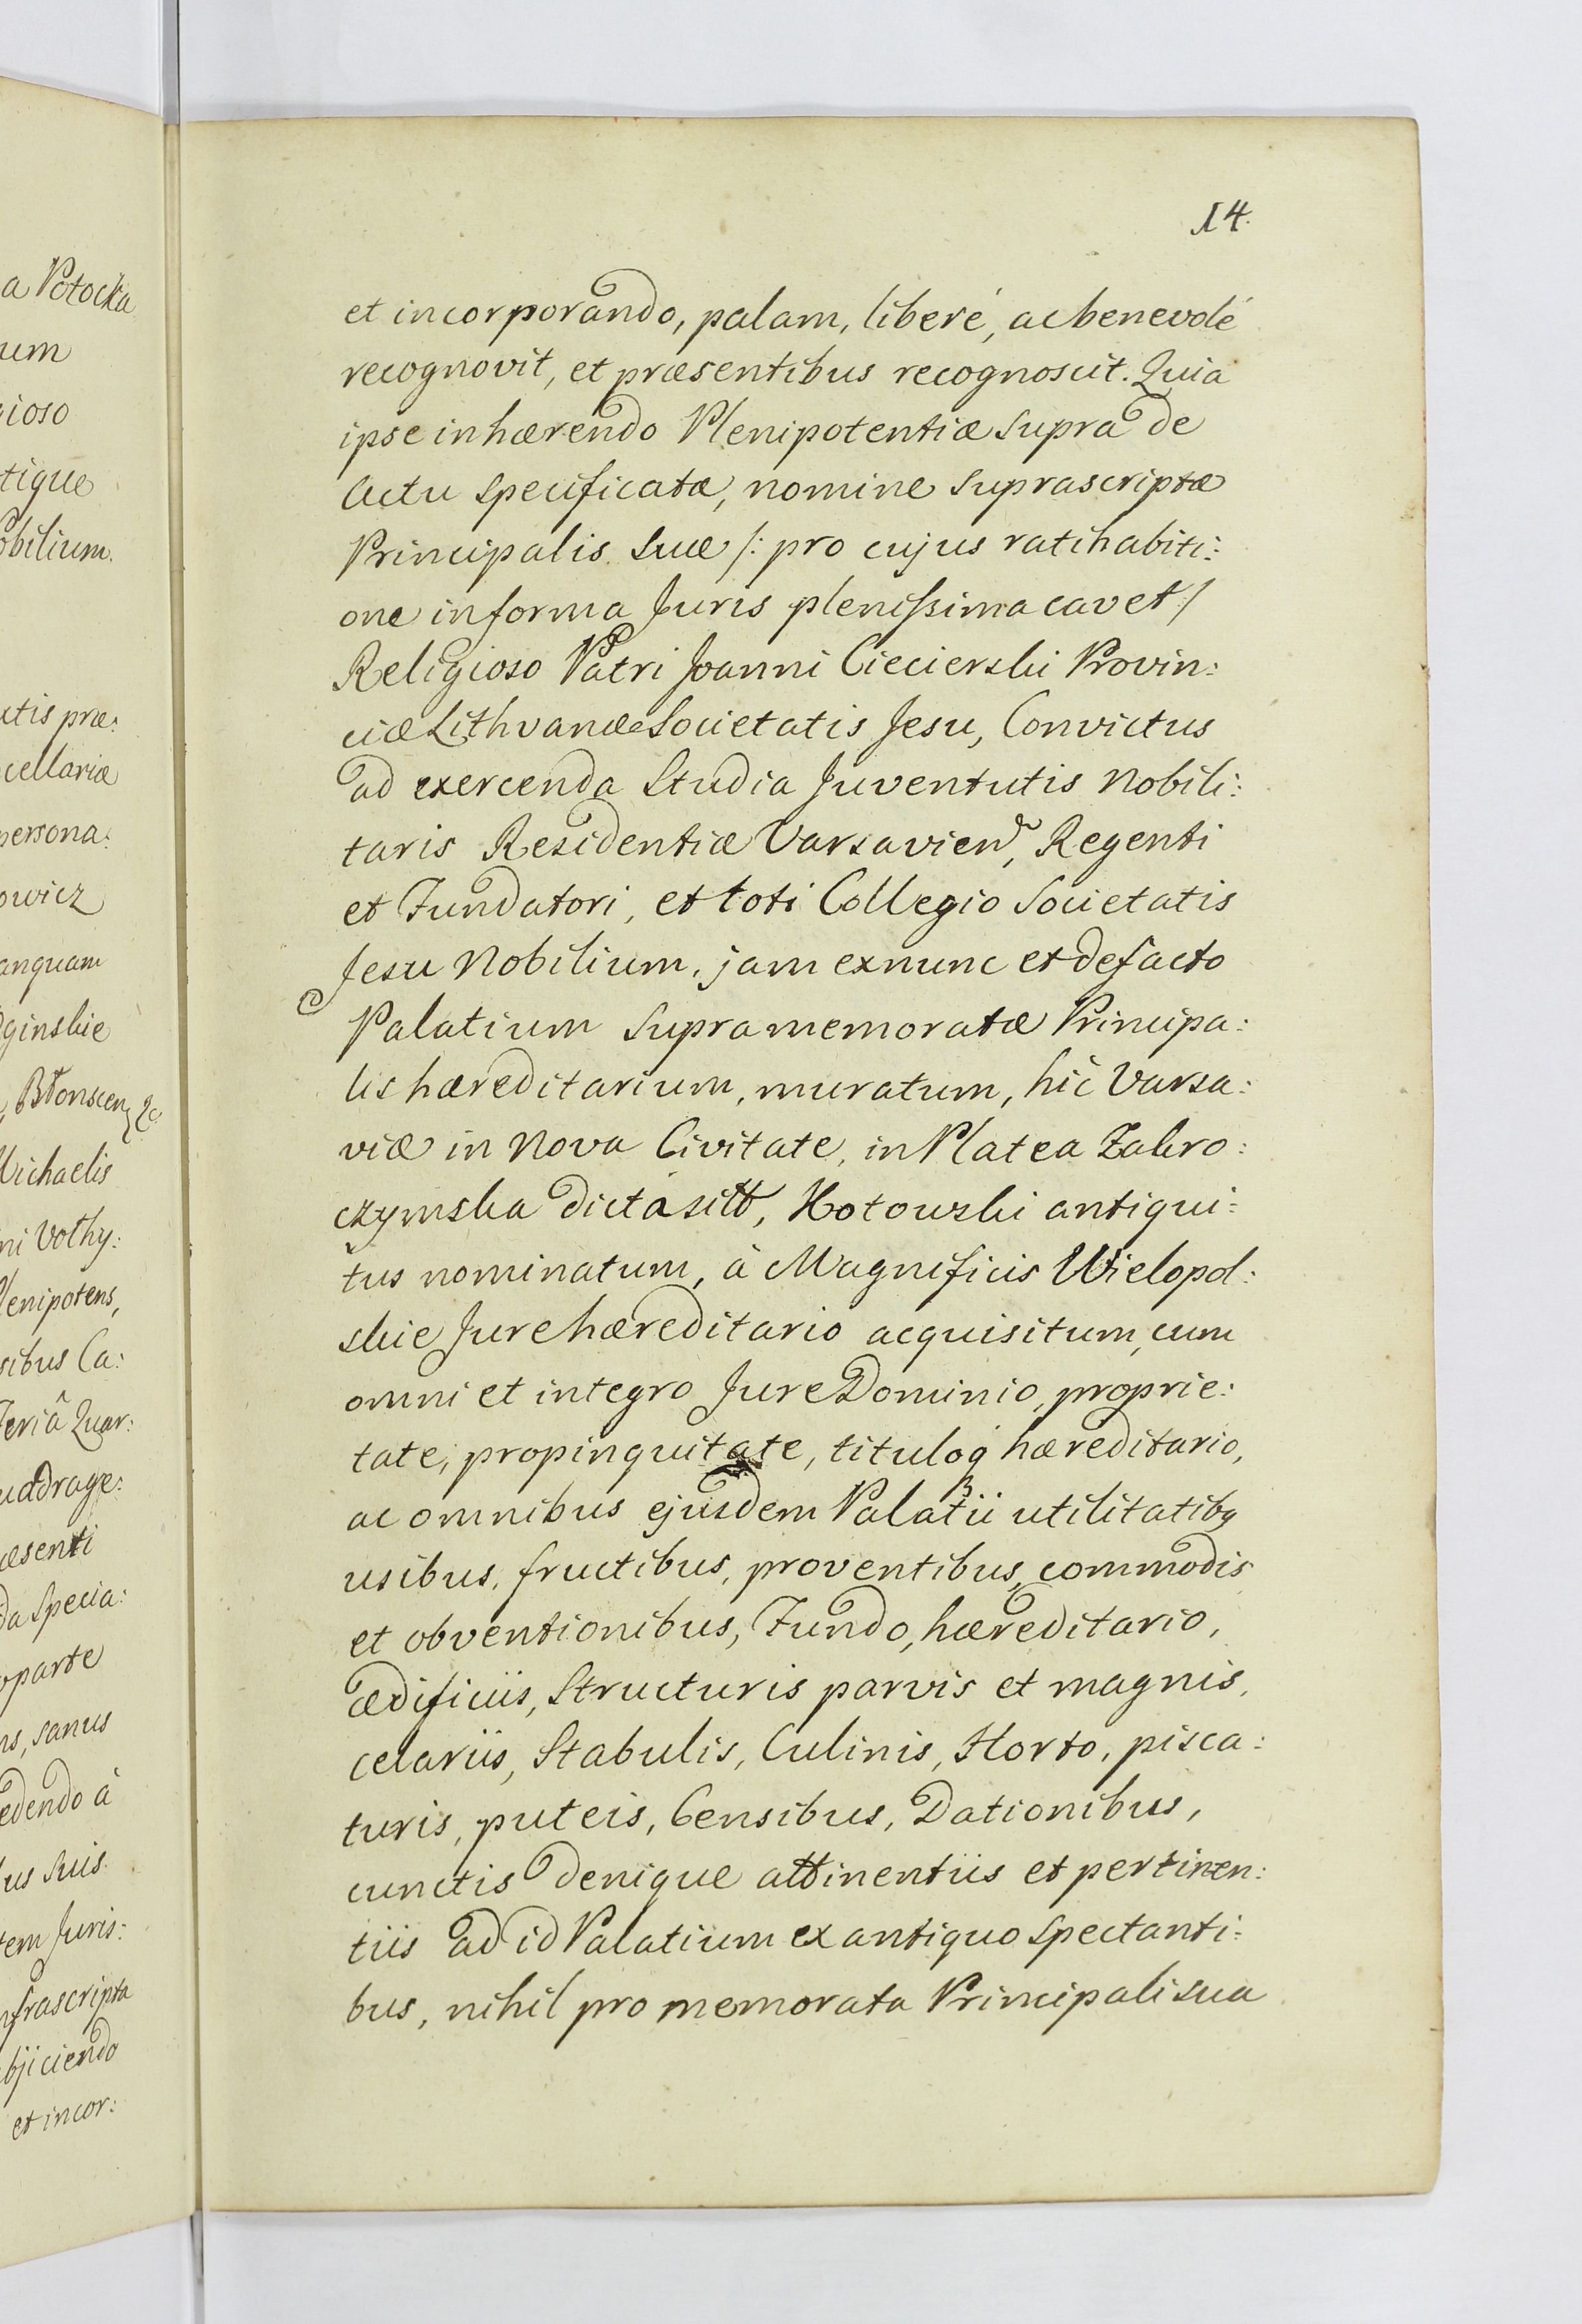 a Potocka
um
ioso
tique
obilium.
utis præ:
cellariæ
persona:
owicz
anquam
ginskie
Błonscen
Michaelis
ni Vołhy:
lenipotens,
sibus Ca:
feriâ Quar:
uadrage:
æsenti
da Specia:
oparte
ns, sanus
edendo à
us Suis
tem Juris:
nfrascripta
bjiciendo
et incor:
14.
et incorporando, palam, liberé, ac benevolé
recognovit, et præsentibus recognoscit. Quia
ipse inhærendo Plenipotentiæ Supra de
Actu Specificatæ, nomine Suprascriptæ
Principalis Suæ /: pro cujus ratihabiti:
one in forma Juris plenissima cavet :/
Religioso Patri Joanni Ciecierski Provin:
ciæ Lithvanæ Societatis Jesu, Convictus
ad exercenda Studia Juventutis Nobili:
taris Residentiæ Varsavien, Regenti
et Fundatori, et toti Collegio Societatis
Jesu Nobilium, jam exnunc et defacto
Palatium Supra memoratæ Principa:
lis hæreditarium, muratum, hic Varsa:
viæ in Nova Civitate, in Platea Zakro:
czymska dicta sitt, Kotowski antiqui:
tus nominatum, à Magnificis Wielopol:
skie Jure hæreditario acquisitum, cum
omni et integro Jure Dominio, proprie:
tate, propinquitate, tituloq hæreditario,
ac omnibus ejusdem Palatii utilitatibq
usibus, fructibus, proventibus, commodis
et obventionibus, Fundo, hæreditario,
ædificiis, Structuris parvis et magnis,
celariis, Stabulis, Culinis, Horto, pisca:
turis, puteis, Censibus, Dationibus,
cunctis denique attinentiis et pertinen:
tiis ad id Palatium ex antiquo Spectanti:
bus, nihil pro memorata Principali sua